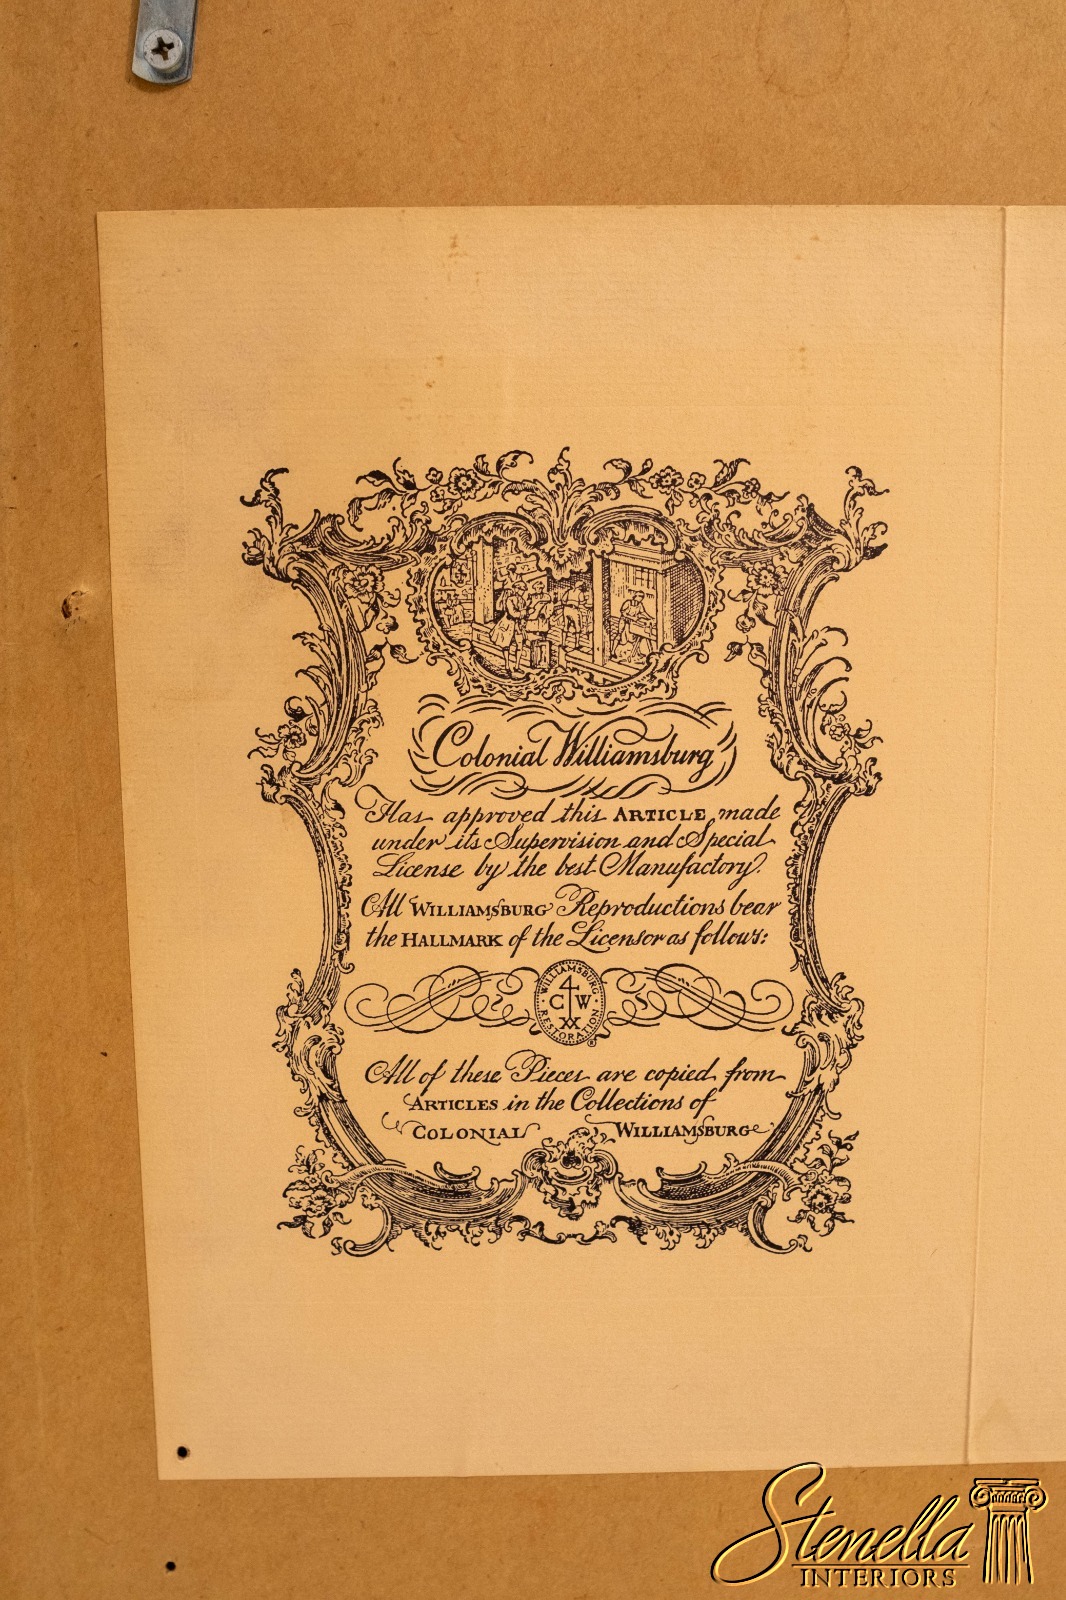 Colonial Williamsburg
Has approved this ARTICLE made
under its Supervision and Special
License by the best Manufactory.
All WILLIAMSBURG Reproductions bear
the HALLMARK of the Licensor as follows:
WILLIAMSBURG
C W
RESTORATION
®
All of these Pieces are copied from
ARTICLES in the Collections of
COLONIAL WILLIAMSBURG
Stenella
INTERIORS